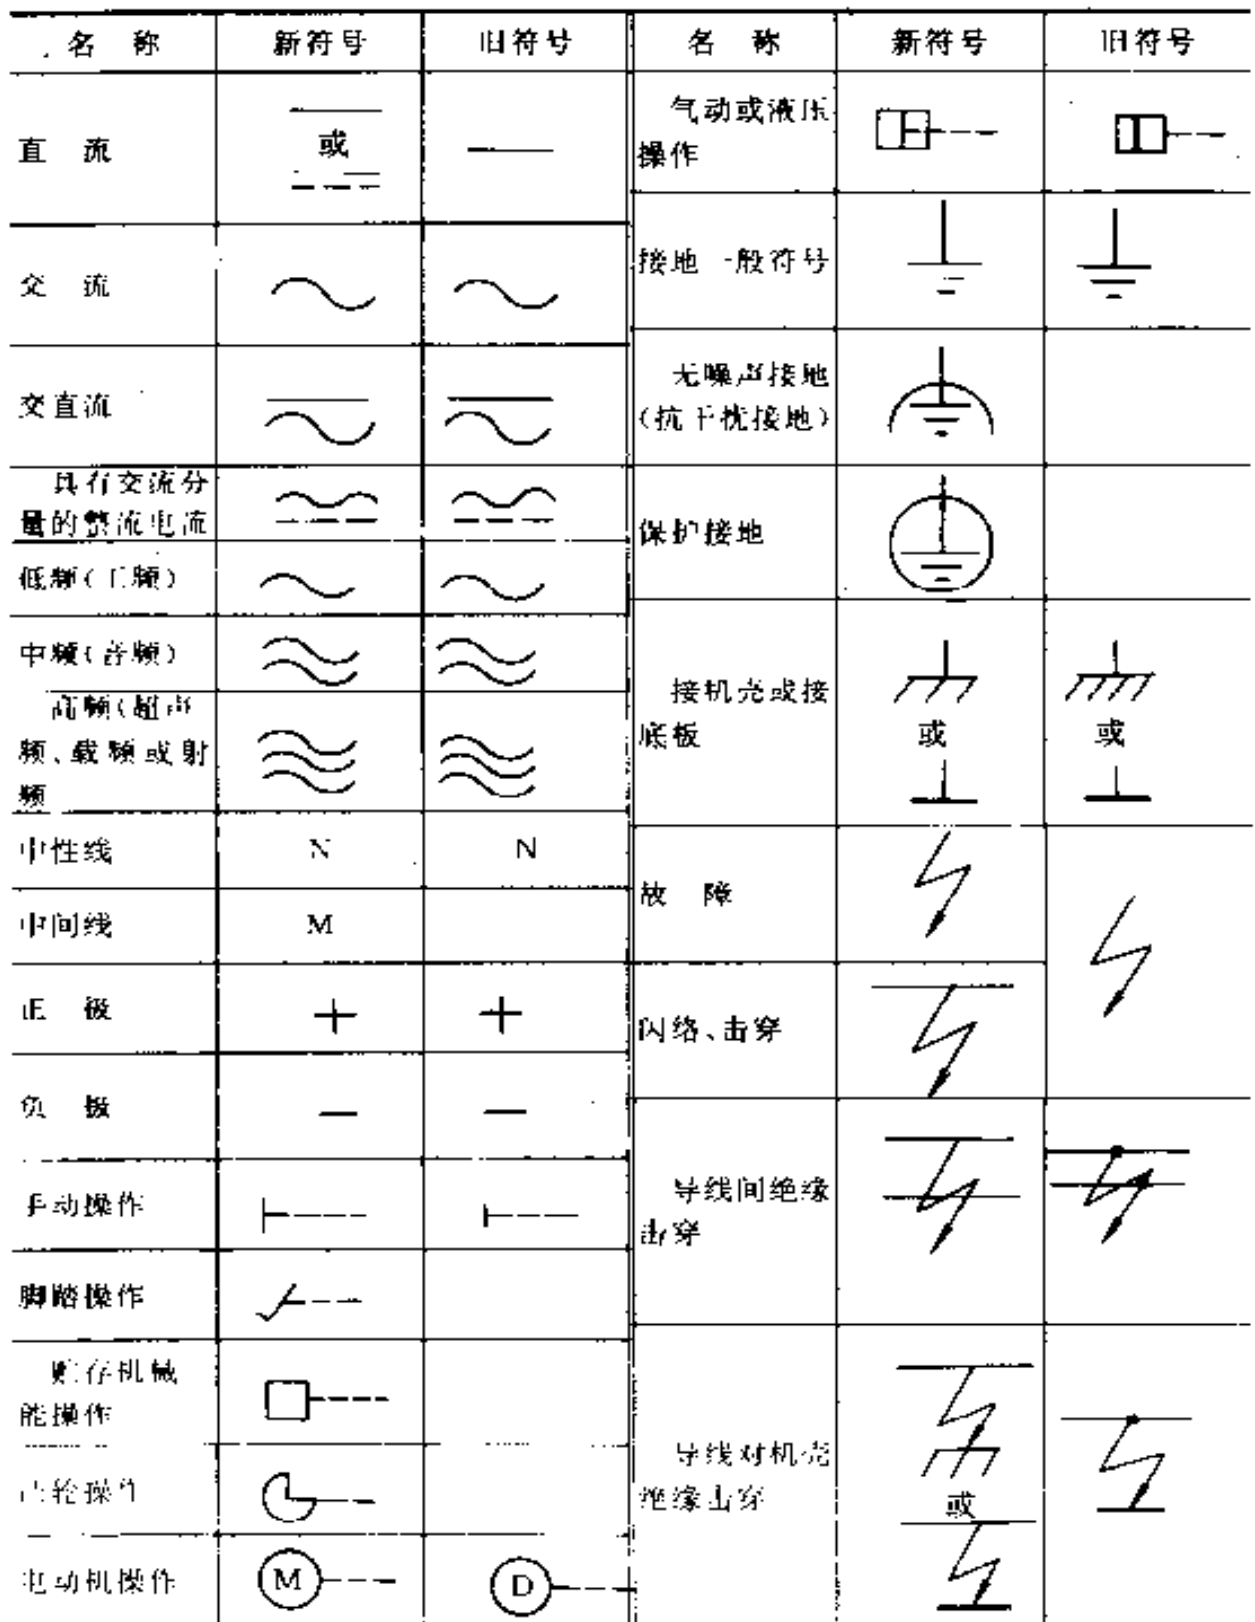 名 称 新符号 旧符号 名 称 新符号 旧符号
直 流
或
交 流
交直流
具有交流分
量的整流电流
低频(工频)
中频(音频)
高频(超声
频、载频或射
频
中性线 N N
中间线 M
正 极 + +
负 极 — —
手动操作
脚踏操作
贮存机械
能操作
凸轮操作
电动机操作 M D
气动或液压
操作
接地一般符号
无噪声接地
(抗干扰接地)
保护接地
接机壳或接
底板
或 或
故 障
闪络、击穿
导线间绝缘
击穿
导线对机壳
绝缘击穿
或